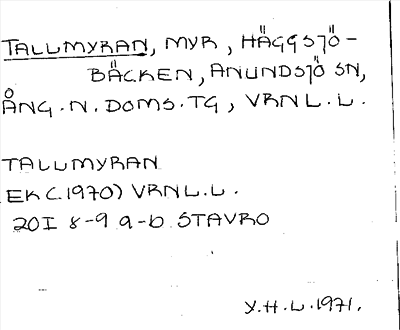 TALLMYRAN, MYR, HÄGGSJÖ-
BÄCKEN, ANUNDSJÖ SN,
ÅNG.N.DOMS.TG, VRNL.L.
TALLMYRAN
EK(.1970) VRNL.L.
20I 8-9 a-b STAVRO
Y.H.L.1971.